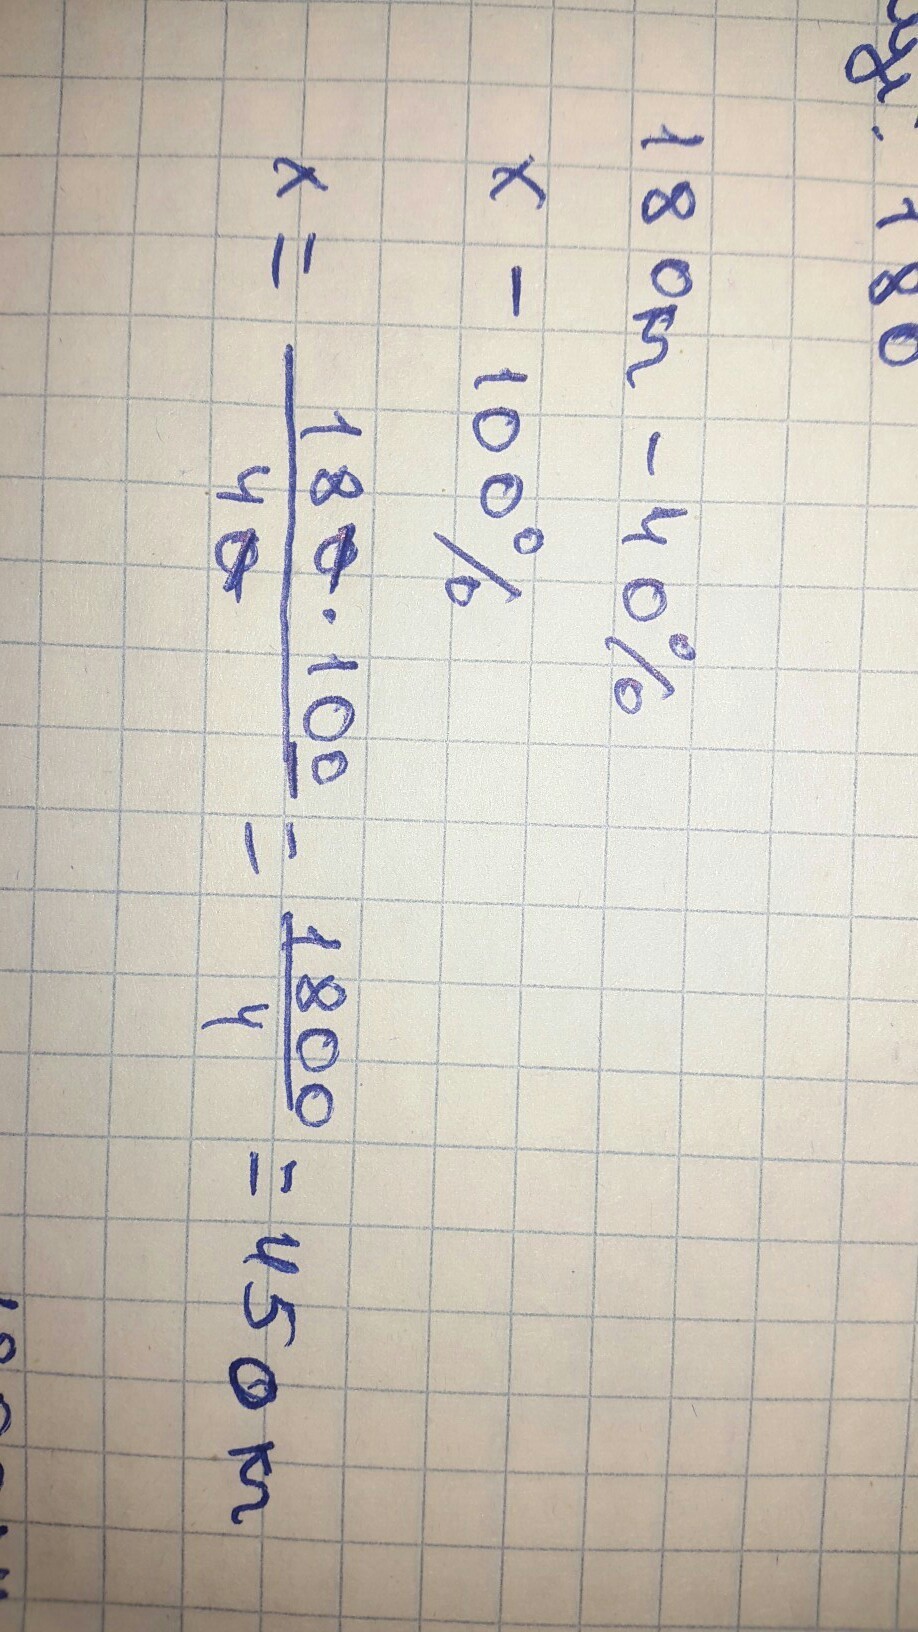 180
180кг - 40%
x - 100%
x = 180·100 / 40 = 1800 / 4 = 450 кг